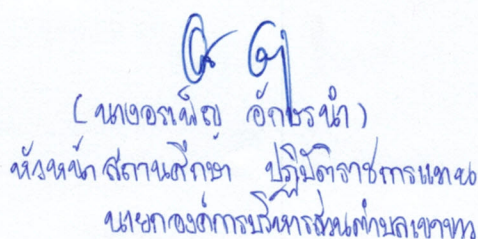 (นางอรเพ็ญ อักษรนำ)
หัวหน้าสถานศึกษา ปฏิบัติราชการแทน
นายกองค์การบริหารส่วนตำบลเขาขาว